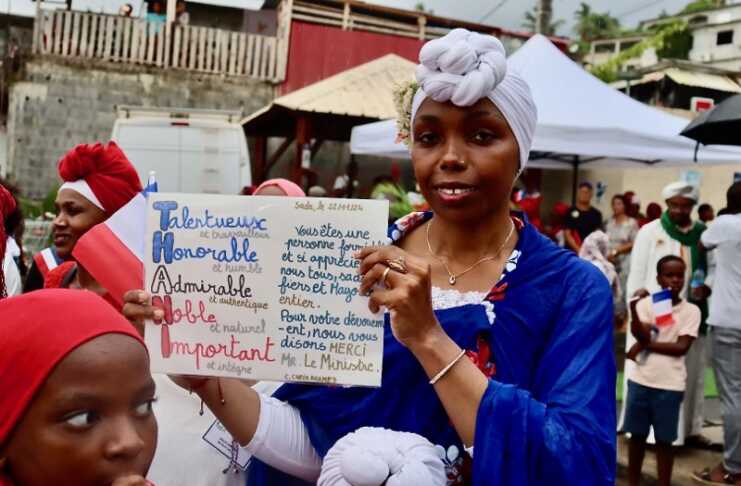 Talentueux
et travailleur
Honorable
et humble
Admirable
et authentique
Noble
et naturel
Important
et intègre
Sada, le
Vous êtes une
personne formi
et si appréciée
nous tous, sad
fiers et Maho
entier.
Pour votre dévouem
-ent, nous vous
disons MERCI
Mr. Le Ministre.